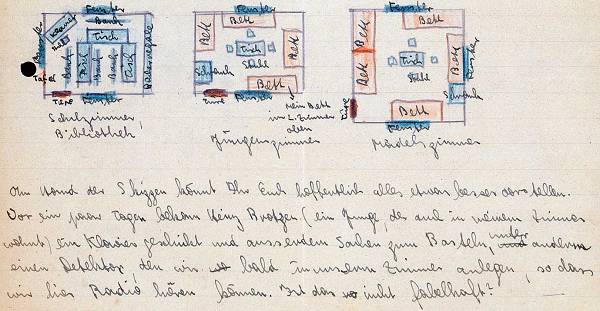 Fenster
Klavier
Bank
Tisch
Fenster
Tafel
Bank
Tisch
Bank
Bank
Tisch
Bücherregale
Türe
Fenster
Schulzimmer,
Bibliothek
Fenster
Bett
Bett
Tisch
Bett
Stühle
Schrank
Bett
Türe
Fenster
Mein Bett
im L. Zimmer
oben
Jungenzimmer
Fenster
Bett
Bett
Bett
Tisch
Bett
Fenster
Stühle
Schrank
Bett
Türe
Fenster
Mädelszimmer
An Hand der Skizzen könnt Ihr Euch hoffentlich alles etwas besser vorstellen.
Vor ein paar Tagen bekam Heinz Brotzen (ein Junge, der auch in meinem Zimmer
wohnt) ein Klavier geschickt und ausserdem Sachen zum Basteln, unter anderem
einen Detektor, den wir bald in unserm Zimmer anlegen, so dass
wir hier Radio hören können. Ist das nicht fabelhaft?